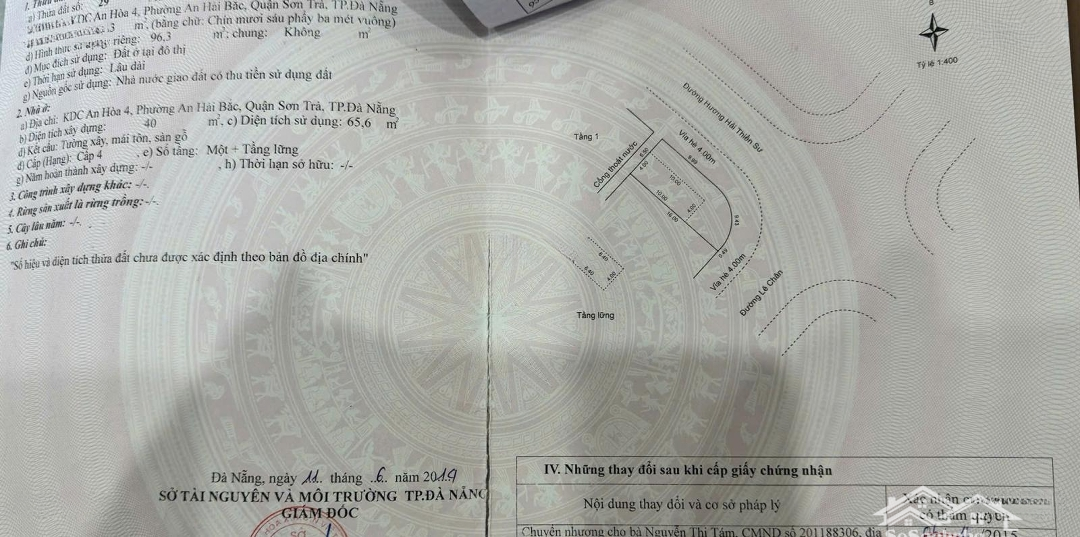 a) Thửa đất số: 29
KDC An Hòa 4, Phường An Hải Bắc, Quận Sơn Trà, TP.Đà Nẵng
m², (bằng chữ: Chín mươi sáu phẩy ba mét vuông)
d) Hình thức sử dụng: riêng: 96,3 m²; chung: Không m²
đ) Mục đích sử dụng: Đất ở tại đô thị
e) Thời hạn sử dụng: Lâu dài
g) Nguồn gốc sử dụng: Nhà nước giao đất có thu tiền sử dụng đất
2. Nhà ở:
a) Địa chỉ: KDC An Hòa 4, Phường An Hải Bắc, Quận Sơn Trà, TP.Đà Nẵng
b) Diện tích xây dựng: 40 m², c) Diện tích sử dụng: 65,6 m²
d) Kết cấu: Tường xây, mái tôn, sàn gỗ
đ) Cấp (Hạng): Cấp 4 , e) Số tầng: Một + Tầng lững
g) Năm hoàn thành xây dựng: -/- , h) Thời hạn sở hữu: -/-
3. Công trình xây dựng khác: -/-.
4. Rừng sản xuất là rừng trồng: -/-.
5. Cây lâu năm: -/-.
6. Ghi chú:
"Số hiệu và diện tích thửa đất chưa được xác định theo bản đồ địa chính"
B
Tỷ lệ 1:400
Đường Hương Hải Thiền Sư
Tầng 1
Vỉa hè 4.00m
Cống thoát nước
6.50
4.00
9.89
10.00
10.00
4.00
16.00
9.43
0.49
Vỉa hè 4.00m
Đường Lê Chân
6.40
6.40
4.00
Tầng lững
Đà Nẵng, ngày 11 tháng 6 năm 2019
SỞ TÀI NGUYÊN VÀ MÔI TRƯỜNG TP.ĐÀ NẴNG
GIÁM ĐỐC
IV. Những thay đổi sau khi cấp giấy chứng nhận
Nội dung thay đổi và cơ sở pháp lý
Xác nhận của
có thẩm quyền
Chuyển nhượng cho bà Nguyễn Thị Tám, CMND số 201188306, địa
2015